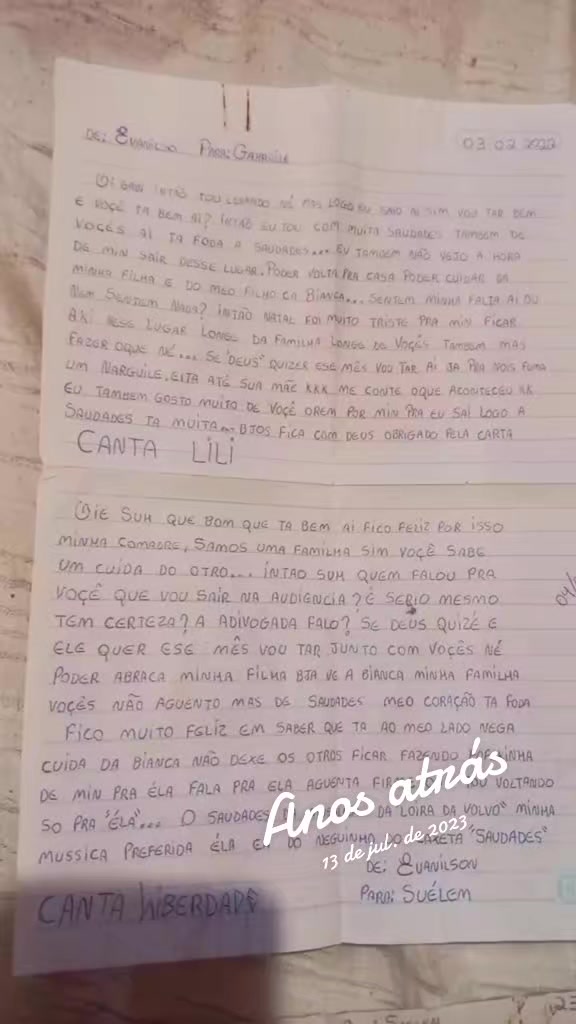 DE: EVANILSO PARA: GABRIELE
03.02.2022
Oi GABI INTÃO TOU LEVANDO NÉ MAS LOGO EU SAIO AI SIM VOU TAR BEM
E VOÇÊ TA BEM AI? INTÃO EU TOU COM MUITA SAUDADES TAMBEM DE
VOCÊS AI TA FODA A SAUDADES... EU TAMBEM NÃO VEJO A HORA
DE MIN SAIR DESSE LUGAR. PODER VOLTA PRA CASA PODER CUIDAR DA
MINHA FILHA E DO MEO FILHO CA BIANCA... SENTEM MINHA FALTA AI OU
NEM SENTEM NADA? INTÃO NATAL FOI MUITO TRISTE PRA MIN FICAR
AKI NESE LUGAR LONGE DA FAMILHA LONGE DE VOÇÊS TAMBEM MAS
FAZER OQUE NÉ... SE "DEUS" QUIZER ESE MÊS VOU TAR AI JA PRA NOIS FUMA
UM NARGUILE. EITA ATÉ SUA MÃE KKK ME CONTE OQUE ACONTECEU KK
EU TAMBEM GOSTO MUITO DE VOÇÊ OREM POR MIN PRA EU SAI LOGO A
SAUDADES TA MUITA... BJOS FICA COM DEUS OBRIGADO PELA CARTA
CANTA LILI
OIE SUH QUE BOM QUE TA BEM AI FICO FELIZ POR ISSO
MINHA COMADRE, SAMOS UMA FAMILHA SIM VOÇÊ SABE
UM CUIDA DO OTRO... INTAO SUH QUEM FALOU PRA
VOÇÊ QUE VOU SAIR NA AUDIENCIA? É SERIO MESMO
TEM CERTEZA? A ADIVOGADA FALO? SE DEUS QUIZÉ E
ELE QUER ESE MÊS VOU TAR JUNTO COM VOÇÊS NÉ
PODER ABRACA MINHA FILHA BJA VE A BIANCA MINHA FAMILHA
VOÇÊS NÃO AGUENTO MAS DE SAUDADES MEO CORAÇÃO TA FODA
FICO MUITO FELIZ EM SABER QUE TA AO MEO LADO NEGA
CUIDA DA BIANCA NÃO DEXE OS OTROS FICAR FAZENDO
DE MIN PRA ÉLA FALA PRA ELA AGUENTA VOU VOLTANDO
SO PRA "ÉLA"... O SAUDADES DA LOIRA DA VOLVO" MINHA
MUSSICA PREFERIDA ÉLA E DO NEGUINHO DO KAXETA "SAUDADES"
DE: EVANILSON
PARA: SUÉLEM
CANTA LIBERDADE
Anos atrás
13 de jul. de 2023